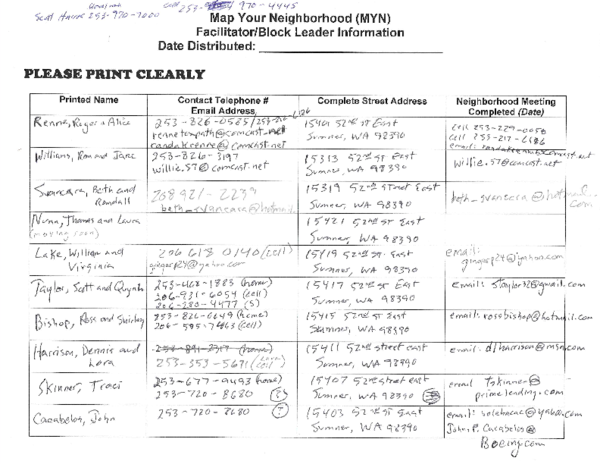 Scott Harris 253-970-7000 cell 253- 970-4445
Map Your Neighborhood (MYN)
Facilitator/Block Leader Information
Date Distributed:
PLEASE PRINT CLEARLY
Printed Name
Contact Telephone #
Email Address
Complete Street Address
Neighborhood Meeting
Completed (Date)
Alice
253-826-0585
15401 52nd St East
Sumner, WA 98390
cell 253-229-0050
cell 253-217-6186
email:
Williams, Ron and Jane
253-826-3197
willie.57@comcast.net
15313 52nd St East
Sumner, WA 98390
willie.57@comcast.net
Svancara, Beth and
Randall
208 921-2239
beth_svancara@hotmail.
15319 52nd Street East
Sumner, WA 98390
beth_svancara@hotmail.
com
Nunn, Thomas and Laura
(moving soon)
15421 52nd St East
Sumner, WA 98390
Lake, William and
Virginia
206 618 0140 (cell)
15419 52nd St. East
Sumner, WA 98390
email:
Taylor, Scott and
253-468-1883 (home)
206-931-6054 (cell)
206-280-4477 (S)
15417 52nd St East
Sumner, WA 98390
email:
Bishop, Ross and Shirley
253-826-6649 (home)
206-595-7463 (cell)
15415 52nd St East
Sumner, WA 98390
email: rosebishop@hotmail.com
Harrison, Dennis and
Lora
253-891-2917 (home)
253-353-5671 (cell)
15411 52nd street east
Sumner, WA 98390
email: djharrison@msn.com
Skinner, Traci
253-677-0493 (home)
253-720-8680 (?)
15407 52nd street east
Sumner, WA 98390
email tskinner@
primelending.com
Cacabelos, John
253-720-8680 (?)
15403 52nd St East
Sumner, WA 98390
email:
John.P.Cacabelos@
Boeing.com